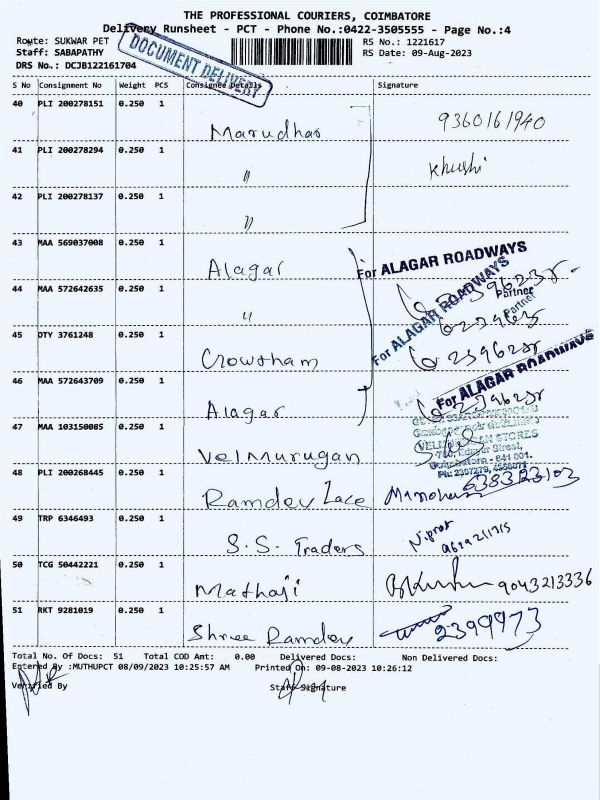 THE PROFESSIONAL COURIERS, COIMBATORE
Delivery Runsheet - PCT - Phone No.:0422-3505555 - Page No.:4
Route: SUKWAR PET
RS No.: 1221617
Staff: SABAPATHY
RS Date: 09-Aug-2023
DRS No.: DCJB122161704
DOCUMENT DELIVERY
S No Consignment No Weight PCS Consignee Details Signature
40 PLI 200278151 0.250 1 Marudhar 9360161940
41 PLI 200278294 0.250 1 〃 Khushi
42 PLI 200278137 0.250 1 〃
43 MAA 569037008 0.250 1 Alagar
For ALAGAR ROADWAYS
Partner
44 MAA 572642635 0.250 1 〃
For ALAGAR ROADWAYS
Partner
45 DTY 3761248 0.250 1 Crowtham
46 MAA 572643709 0.250 1 Alagar
For ALAGAR ROADWAYS
47 MAA 103150085 0.250 1 Velmurugan
STORES
48 PLI 200268445 0.250 1 Ramdev Lace
49 TRP 6346493 0.250 1 S.S. Traders
50 TCG 50442221 0.250 1 Mathaji 9043213336
51 RKT 9281019 0.250 1 Shree Ramdev 2399973
Total No. Of Docs: 51 Total COD Amt: 0.00 Delivered Docs: Non Delivered Docs:
Entered By :MUTHUPCT 08/09/2023 10:25:57 AM Printed On: 09-08-2023 10:26:12
Verified By Staff Signature